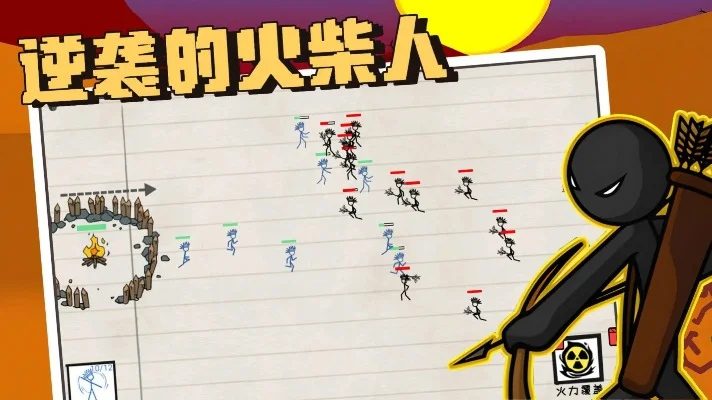 逆袭的火柴人
10/12
火力覆盖